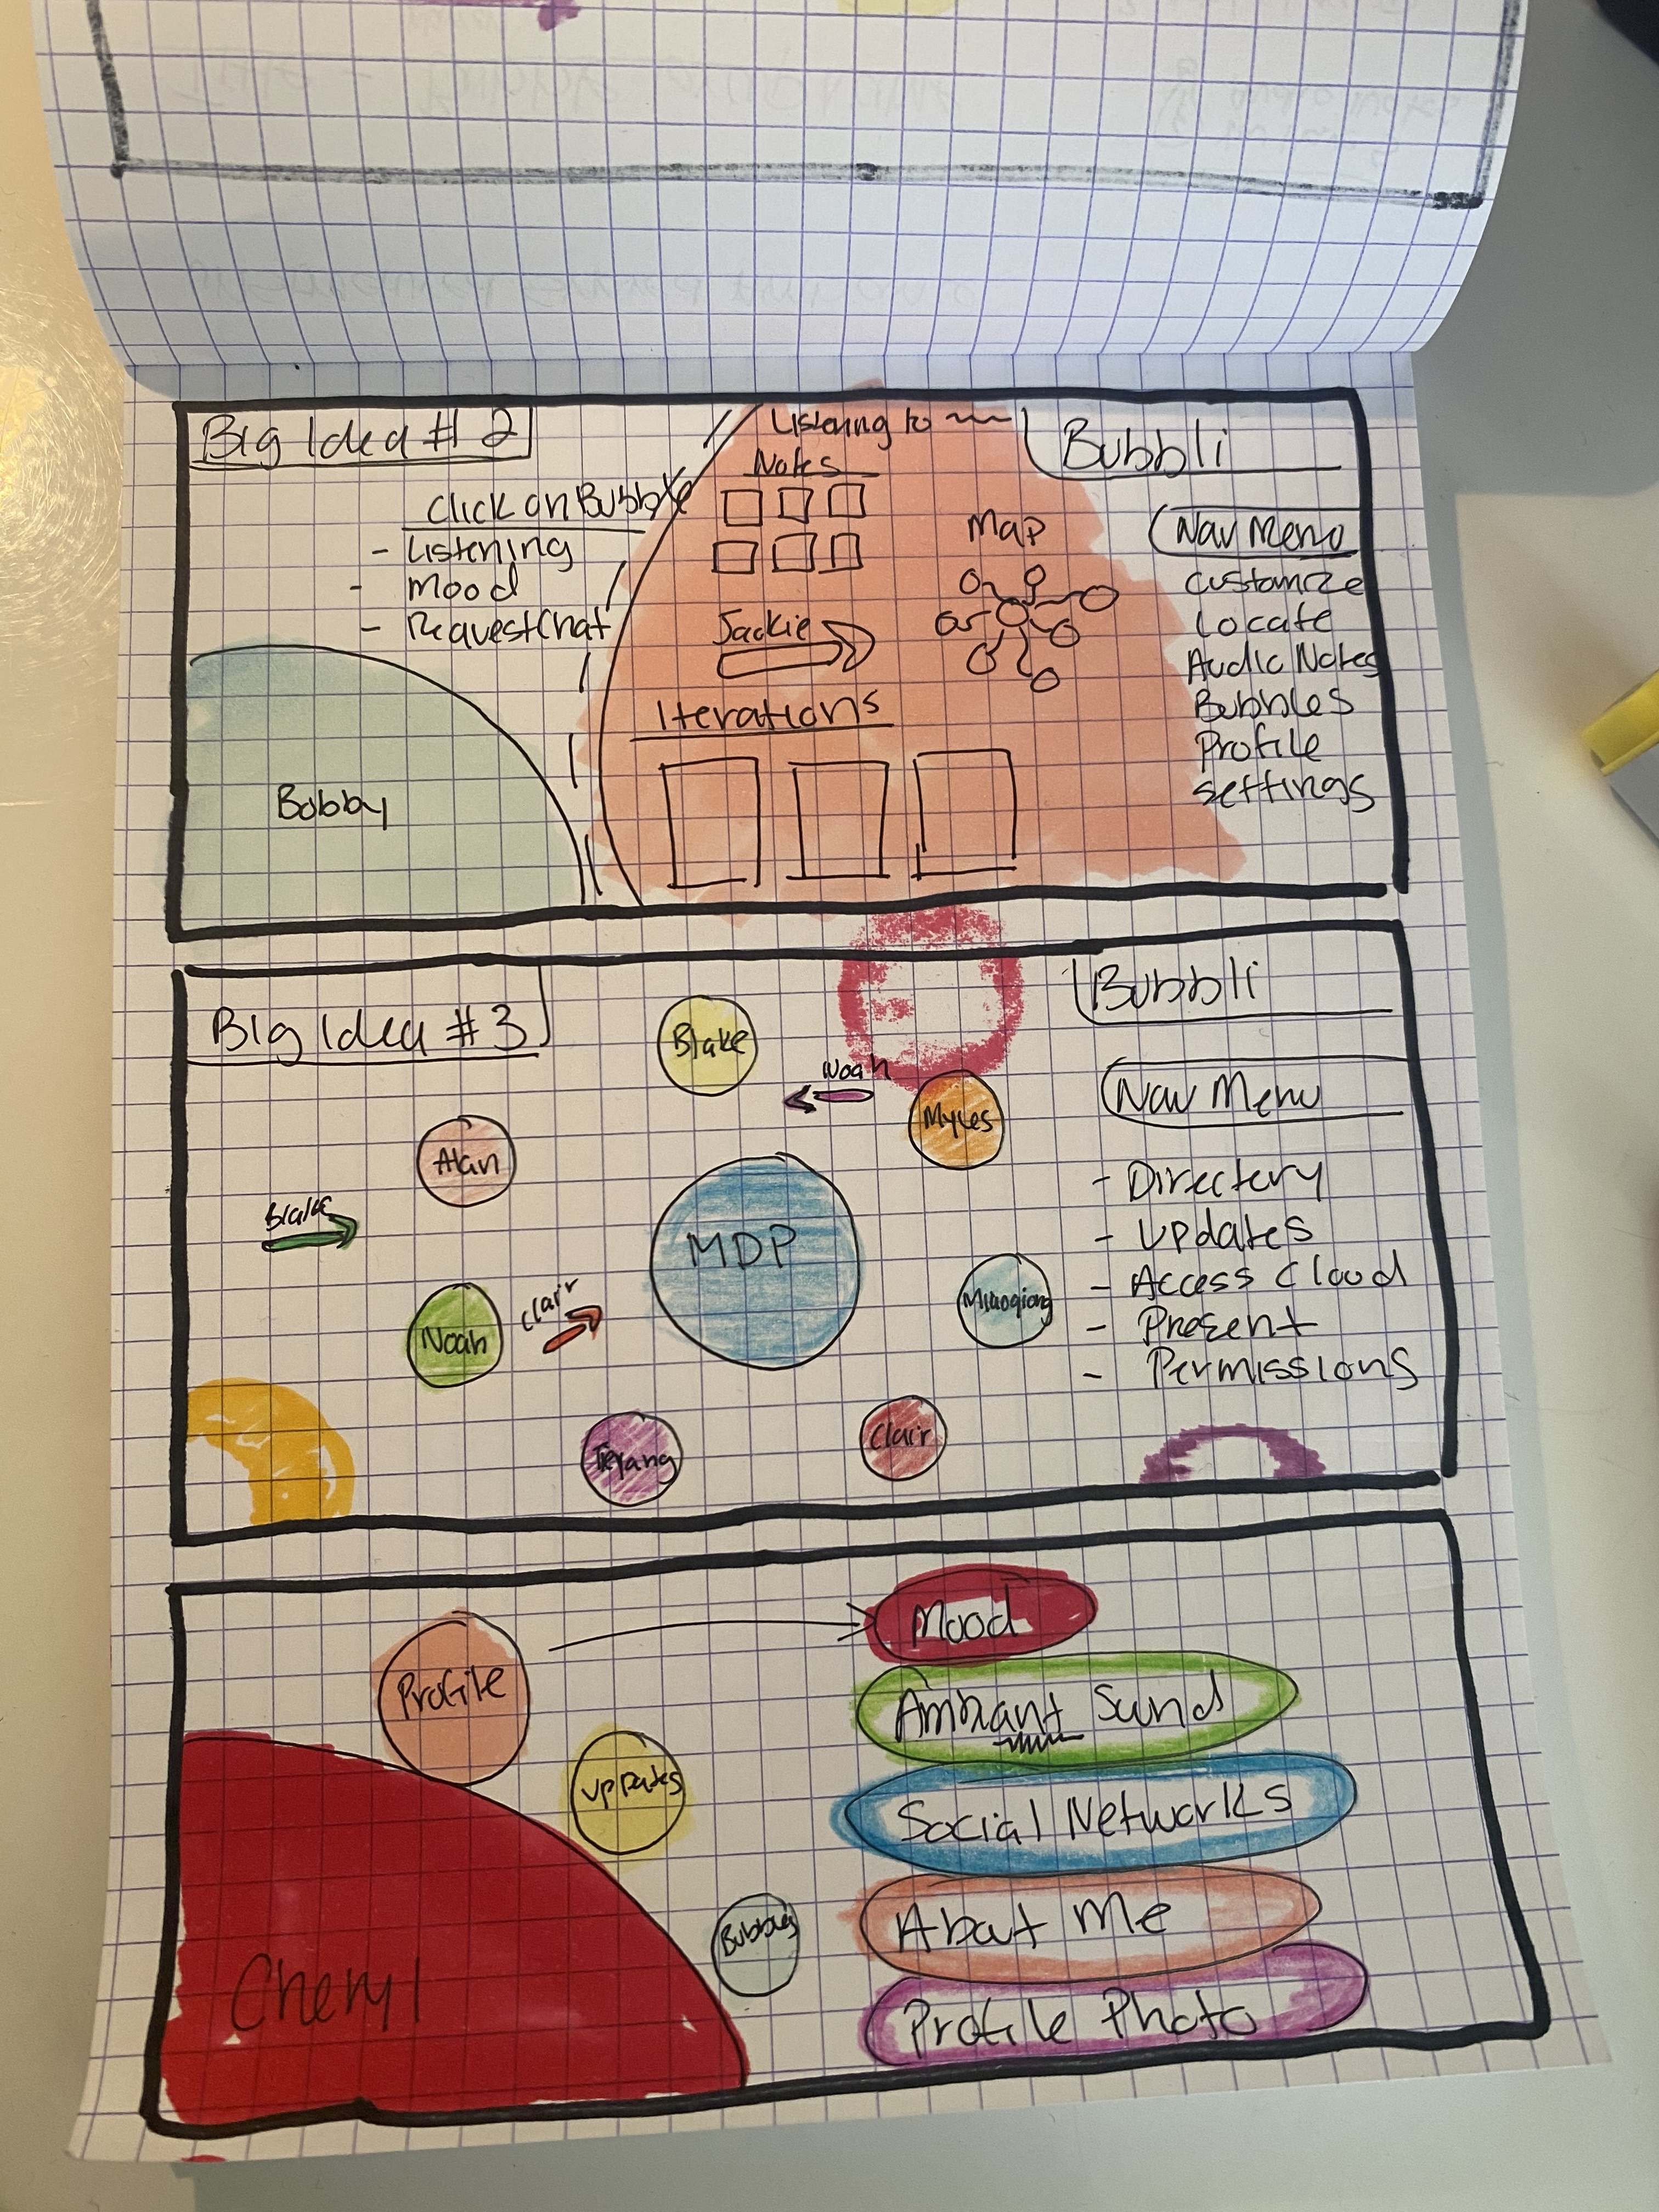 Big Idea # 2
Click on Bubble
- Listening
- Mood
- Request Chat
Bobby
Listening to
Notes
Map
Jackie
Iterations
Bubbli
Nav Menu
Customize
Locate
Audio Notes
Bubbles
Profile
Settings
Big Idea # 3
Blake
Noah
Myles
Alan
Blake
MDP
Noah
Clair
Miaoqiong
Clair
Bubbli
Nav Menu
- Directory
- Updates
- Access Cloud
- Present
- Permissions
Profile
Updates
Bubbles
Cheryl
Mood
Ambiant Sund
Social Networks
About Me
Profile Photo